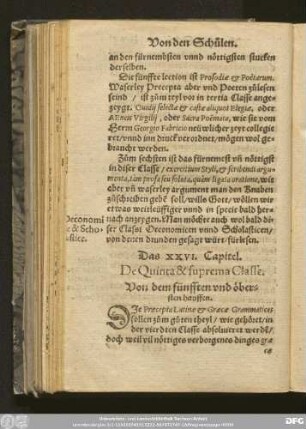 Von den Schůlen.
an den fürnembsten vnnd nöttigsten stucken
derselben.
Die fünffte lection ist Prosodiæ & Poëtarum.
Waserley Precepta aber vnd Poeten zůlesen
seind / ist zům teyl vor in tertia Classe ange-
zeygt. Ouidij selecta & casta aliquot Elegia, oder
Æneis Virgilij, oder Sacra Poëmata, wie sie vom
Herrn Georgio Fabricio newlicher zeyt collegie
ret / vnnd inn druck verordnet / mögen wol ge-
braucht werden.
Zům sechsten ist das fürnemest vñ nöttigst
in diser Classe / exercitium Styli, & scribendi argu-
menta, tam prosa seu soluta, quàm ligata oratione, wie
aber vñ waserley argument man den Knaben
zůschreiben gebē soll / wills Gott / wöllen wir
etwas weitleüffiger vnnd in specie bald her-
nach anzeygen. Man möchte auch wol bald di-
ser Classi Oeconomicen vnnd Scholasticen /
von denen drunden gesagt würt / fürlesen.
Oeconomi
& Scho-
lastice.
Das XXVI. Capitel.
De Quinta & suprema Classe.
Von dem fünfften vnd öber-
sten hauffen.
DJe Præcepta Latinæ & Græcæ Grammatices
sollen zům gůten theyl / wie gehöret / in
der vierdten Classe absoluieret werdē /
doch weil vil nöttiges verborgenes dinges